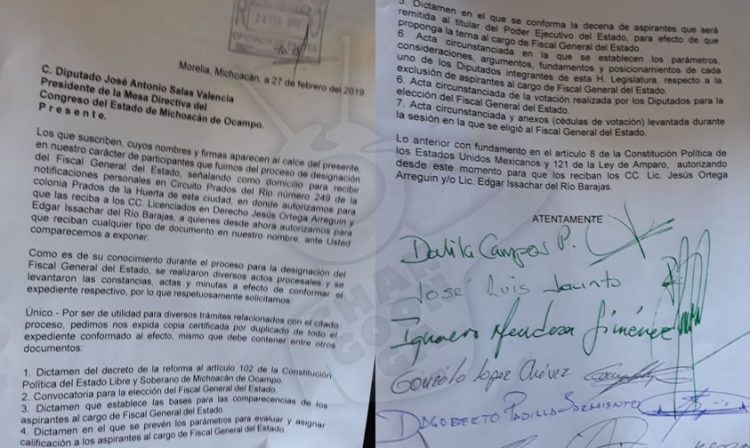 Morelia, Michoacán, a 27 de febrero del 2019
C. Diputado José Antonio Salas Valencia
Presidente de la Mesa Directiva del
Congreso del Estado de Michoacán de Ocampo.
P r e s e n t e.
Los que suscriben, cuyos nombres y firmas aparecen al calce del presente,
en nuestro carácter de participantes que fuimos del proceso de designación
del Fiscal General del Estado, señalando como domicilio para recibir
notificaciones personales en Circuito Prados del Río número 249 de la
colonia Prados de la Huerta de esta ciudad, en donde autorizamos para
que las reciba a los CC. Licenciados en Derecho Jesús Ortega Arreguin y
Edgar Issachar del Río Barajas, a quienes desde ahora autorizamos para
que reciban cualquier tipo de documento en nuestro nombre, ante Usted
comparecemos a exponer:
Como es de su conocimiento durante el proceso para la designación del
Fiscal General del Estado, se realizaron diversos actos procesales y se
levantaron las constancias, actas y minutas a efecto de conformar el
expediente respectivo, por lo que respetuosamente solicitamos:
Único.- Por ser de utilidad para diversos trámites relacionados con el citado
proceso, pedimos nos expida copia certificada por duplicado de todo el
expediente conformado al efecto, mismo que debe contener entre otros
documentos:
1. Dictamen del decreto de la reforma al artículo 102 de la Constitución
Política del Estado Libre y Soberano de Michoacán de Ocampo.
2. Convocatoria para la elección del Fiscal General del Estado.
3. Dictamen que establece las bases para las comparecencias de los
aspirantes al cargo de Fiscal General del Estado.
4. Dictamen en el que se prevén los parámetros para evaluar y asignar
calificación a los aspirantes al cargo de Fiscal General del Estado.
5. Dictamen en el que se conforma la decena de aspirantes que será
remitida al titular del Poder Ejecutivo del Estado, para efecto de que
proponga la terna al cargo de Fiscal General del Estado.
6. Acta circunstanciada en la que se establecen los parámetros,
consideraciones, argumentos, fundamentos y posicionamientos de cada
uno de los Diputados integrantes de esta H. Legislatura, respecto a la
exclusión de aspirantes al cargo de Fiscal General del Estado.
6. Acta circunstanciada de la votación realizada por los Diputados para la
elección del Fiscal General del Estado.
7. Acta circunstanciada y anexos (cédulas de votación) levantada durante
la sesión en la que se eligió al Fiscal General del Estado.
Lo anterior con fundamento en el artículo 8 de la Constitución Política de
los Estados Unidos Mexicanos y 121 de la Ley de Amparo, autorizando
desde este momento para que los reciban los CC. Lic. Jesús Ortega
Arreguin y/o Lic. Edgar Issachar del Río Barajas.
ATENTAMENTE
Dalila Campos P.
José Luis Jacinto
Ignacio Mendoza Jiménez
Gonzalo López Chávez
DAGOBERTO PADILLA SARMIENTO